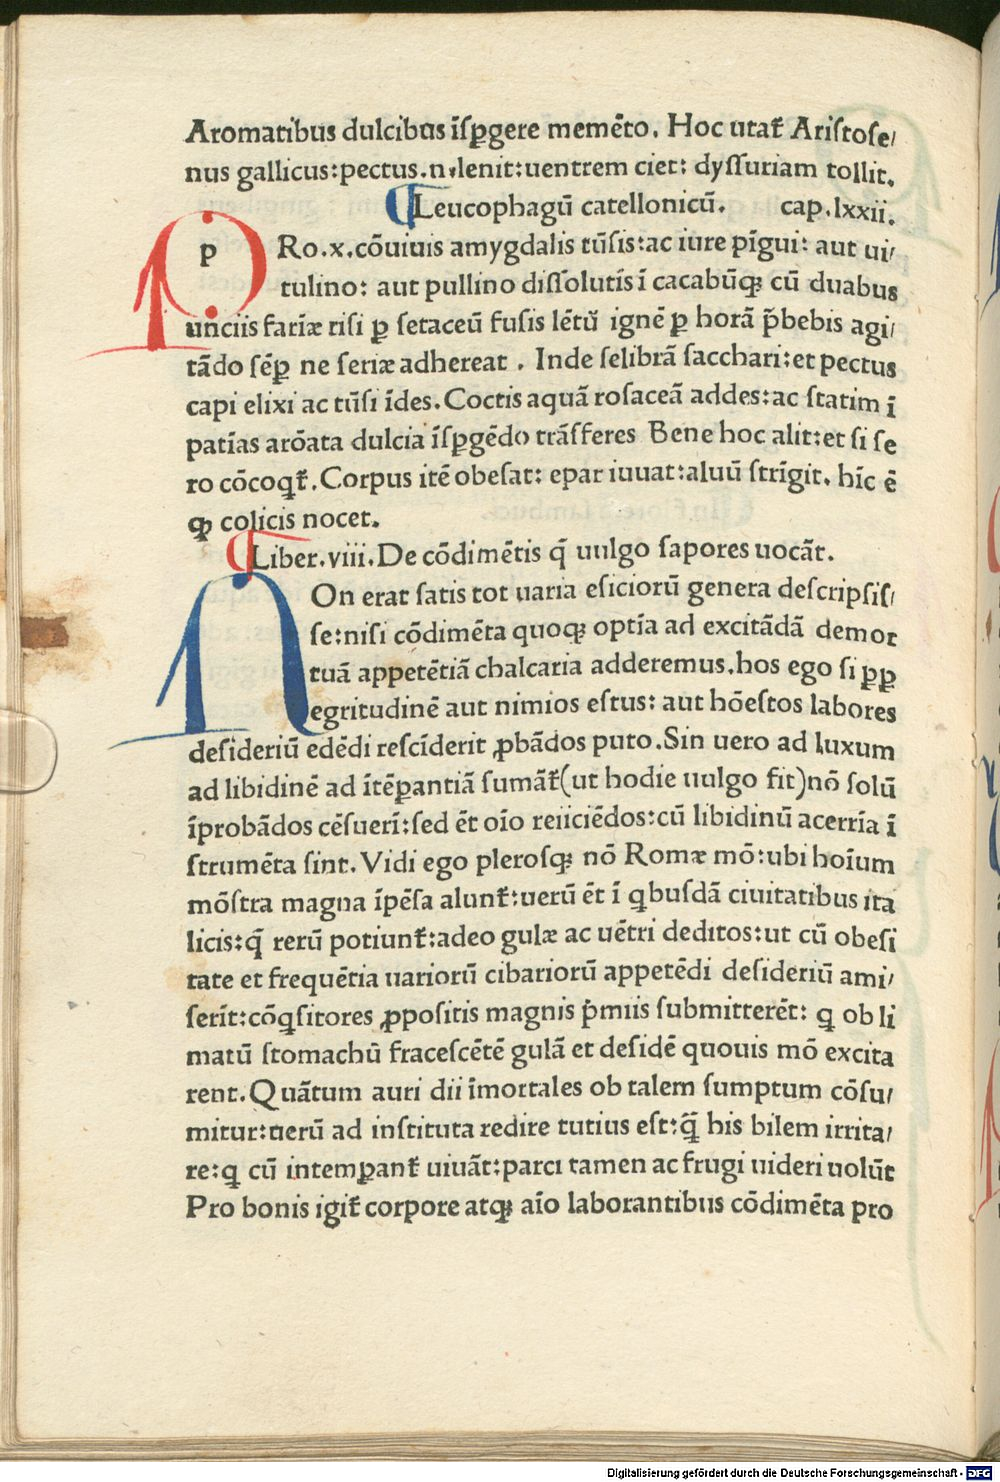 Aromatibus dulcibus īſꝑgere memēto. Hoc utat᷑ Ariſtoſe/
nus gallicus:pectus.n.lenit:uentrem ciet: dyſſuriam tollit.
¶Leucophagū catellonicū. cap.lxxii.
pRo.x.cōuiuis amygdalis tūſis:ac iure pīgui: aut ui/
tulino: aut pullino diſſolutīs ī cacabūqꝫ cū duabus
unciis fariæ riſi ꝑ ſetaceū fuſis lētū ignē ꝑ horā p̄bebis agi/
tādo ſēꝑ ne ſeriæ adhereat . Inde ſelibrā ſacchari:et pectus
capi elixi ac tūſi īdes. Coctis aquā roſaceā addes:ac ſtatim ī
patīas arōata dulcia īſꝑgēdo trāſferes Bene hoc alit:et ſi ſe
ro cōcoqt᷑. Corpus itē obeſat: epar iuuat:aluū ſtrīgit. hīc ē
qꝫ colicis nocet.
¶Liber.viii.De cōdimētis q̄ uulgo ſapores uocāt.
NOn erat ſatis tot uaria eſiciorū genera deſcripſiſ/
ſe:niſi cōdimēta quoqꝫ optīa ad excitādā demor
tuā appetētiā chalcaria adderemus.hos ego ſi ꝓꝑ
egritudinē aut nimios eſtus: aut hōeſtos labores
deſideriū edēdi reſcīderit ꝓbādos puto.Sin uero ad luxum
ad libidinē ad ītēꝑantiā ſumāt᷑(ut hodie uulgo fit)nō ſolū
īprobādos cēſuerī:ſed ēt oīo reiiciēdos:cū libidinū acerrīa ī
ſtrumēta ſint. Vidi ego pleroſqꝫ nō Romæ mō:ubi hoīum
mōſtra magna īpēſa alunt᷑:uerū ēt ī qbuſdā ciuitatibus ita
licis:q̄ rerū potiunt᷑:adeo gulæ ac uētri deditos:ut cū obeſi
tate et frequētia uariorū cibariorū appetēdi deſideriū ami/
ſerīt:cōqſitores ꝓpoſitis magnis p̄miis ſubmitterēt: q ob li
matū ſtomachū fraceſcētē gulā et deſidē quouis mō excita
rent. Quātum auri dii īmortales ob talem ſumptum cōſu/
mitur:uerū ad inſtituta redire tutius eſt:q̄ his bilem irrita/
re:q cū intemꝑant᷑ uiuāt:parci tamen ac frugi uideri uolūt
Pro bonis igit᷑ corpore atqꝫ aīo laborantibus cōdimēta pro
Digitalisierung gefördert durch die Deutsche Forschungsgemeinschaft - DFG